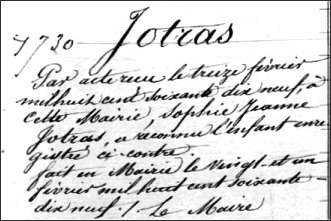 1730 Jotras
Par acte reçu le treize février
mil huit cent soixante dix neuf, à
cette Mairie, Sophie Jeanne
Jotras, a reconnu l'enfant enre
gistré ci contre
fait en Mairie le vingt et un
février mil huit cent soixante
dix neuf ! Le Maire